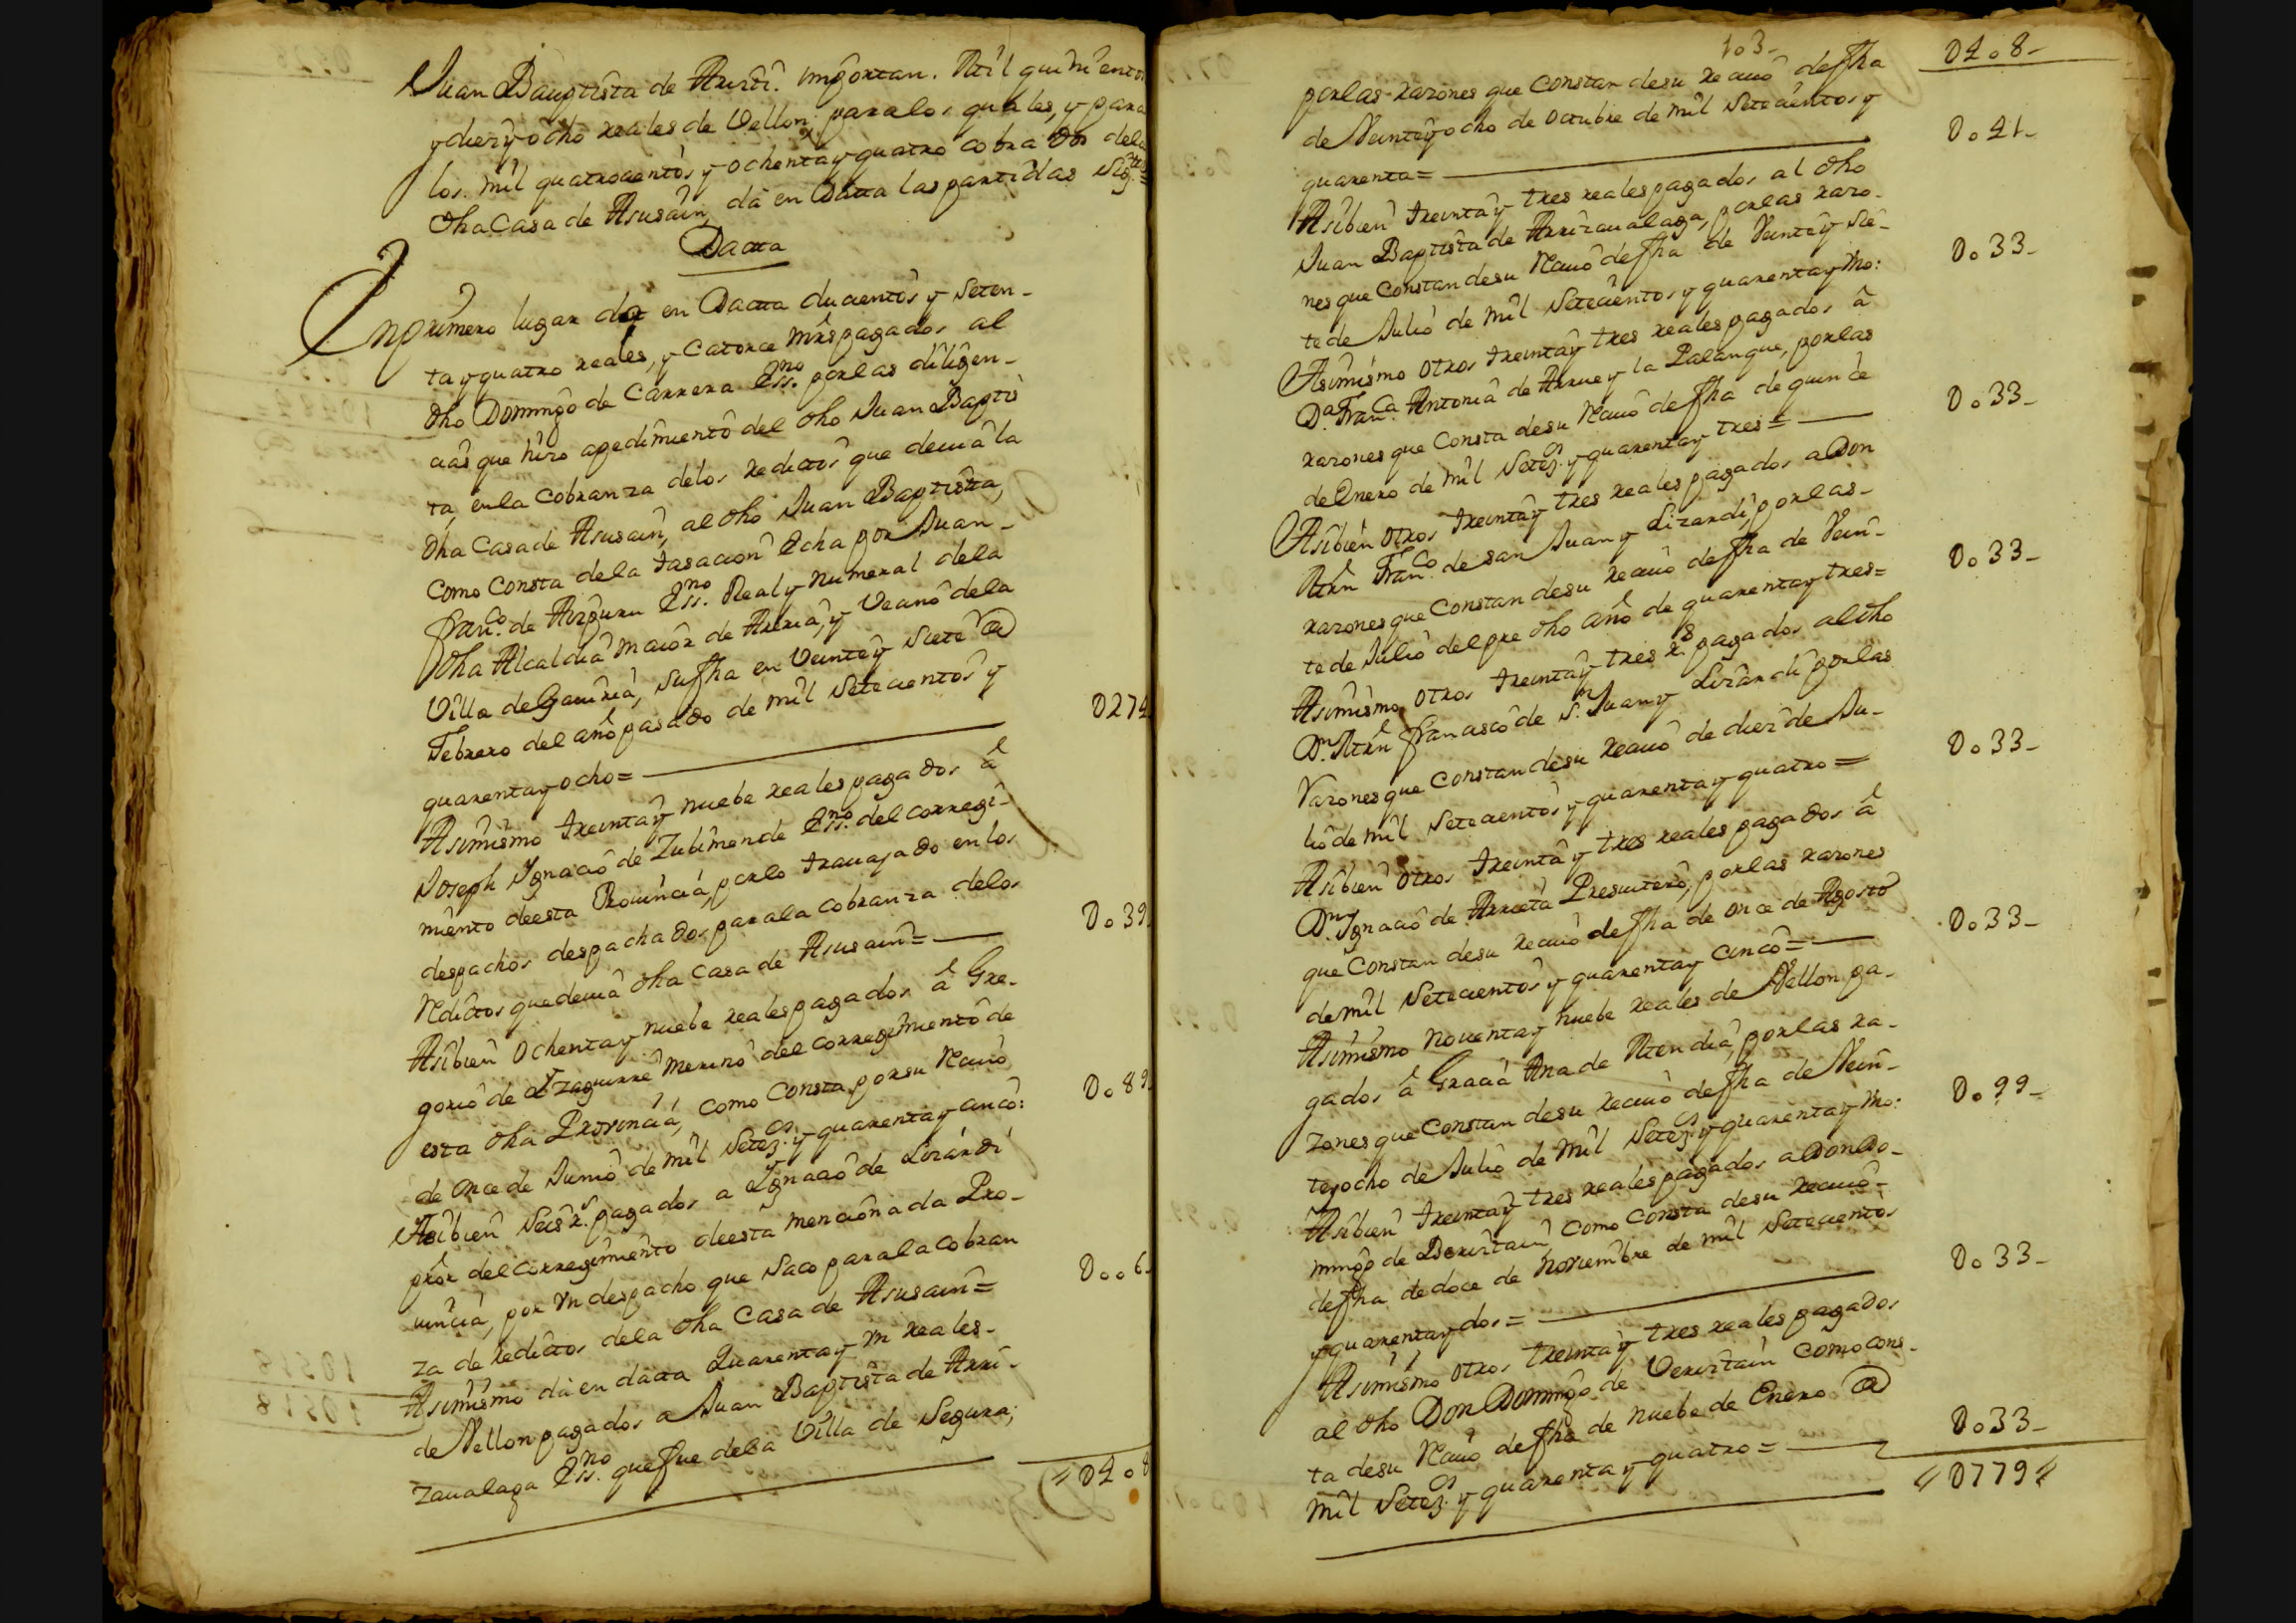 Juan Bauptista de Aristi. importan. Mil quinientos
y diez y ocho reales de Vellon; para los quales, y para
los. mil quatrocientos y ochenta y quatro cobrados dela
dha Casa de Asusain, dà en Datta las partidas Sigtes=
Datta
Enprimero lugar da en Datta ducientos y Seten-
ta y quatro reales, y Catorce mrs pagados al
dho Domingo de Carrera Essno. por las diligen-
cias que hizo apedimiento del dho Juan Baptis
ta, en la Cobranza delos redictos que deuia la
dha Casa de Asusain, al dho Juan Baptista,
Como Consta dela tasacion Echa por Juan-
franco. de Aizpuru Essno. Real y Numeral dela
dha Alcaldia maior de Areria, y Vecino dela
Villa de Gauiria, su fha en Veinte y Siete de
Febrero del año pasado de mil Setecientos y
quarenta y ocho= 0274
Asimismo treinta y nuebe reales pagados â
Joseph Ygnacio de Zubimende Essno. del corregi-
miento deesta Prouincia, por lo trauajado en los
despachos despachados para la cobranza delos
Redictos que deuia dha Casa de Asusain= 0039
Asibien Ochenta y nuebe reales pagados â Gre-
gorio de Yzaguirre Merino del corregimiento de
esta dha Provincia, como Consta por su Recivo
de once de Junio de mil Setezos. y quarenta y cinco: 0089
Asibien Seis rs. pagados a Ygnacio de Lizardi
prôr del corregimiento deesta mencionada Pro-
uincia, por Vn despacho que Saco para la cobran
za de redictos dela dha Casa de Asusain= 0006
Asimismo dà en datta Quarenta y Vn reales-
de Vellon pagados a Juan Baptista de Arri-
zaualaga Essno. que fue dela Villa de Segura;
0408
103-
por las razones que Constan desu recivo de fha 0408-
de Veinte y ocho de octubre de mil Setecientos y
quarenta= 0041-
Asibien treinta y tres reales pagados al dho
Juan Baptista de Arrizaualaga, por las razo-
nes que Constan desu Recivo de fha de Veinte y Sie-
te de Julio de mil Setecientos y quarenta y Vno: 0033-
Asimismo otros treinta y tres reales pagados â
Da. Franca. Antonia de Arrue y la Palanque, por las
razones que Consta desu Recivo de fha de quince
de Enero de mil Setezos. y quarenta y tres= 0033-
Asibien otros treinta y tres reales pagados a Don
Mrn Franco. de san Juan y Lizardi, por las-
razones que Constan desu recivo de fha de Vein-
te de Julio del pre dho año de quarenta y tres= 0033-
Asimismo otros treinta y tres rs. pagados al dho
Dn. Mrn francisco de Sn. Juan y Lizardi por las
Razones que Constan desu recivo de diez de Ju-
lio de mil Setecientos y quarenta y quatro= 0033-
Asibien otros treinta y tres reales pagados â
Dn. Ygnacio de Arrieta Presvitero, por las razones
que Constan desu recivo de fha de once de Agosto
de mil Setecientos y quarenta y cinco= 0033-
Asimismo Noventa y nuebe reales de Vellon pa-
gados â Gracia Ana de Mendia, por las ra-
zones que Constan desu recivo de fha de Vein-
te y ocho de Julio de Mil Setezos. y quarenta y Vno: 0099-
Asibien treinta y tres reales pagados a Don Do-
mingo de Beristain como Consta desu recivo-
de fha de doce de Noviembre de mil Setecientos
y quarenta y dos= 0033-
Asimismo otros treinta y tres reales pagados
al dho Don Domingo de Veristain como cons-
ta desu Recivo de fha de nuebe de Enero de
mil Setezos. y quarenta y quatro= 0033-
0779